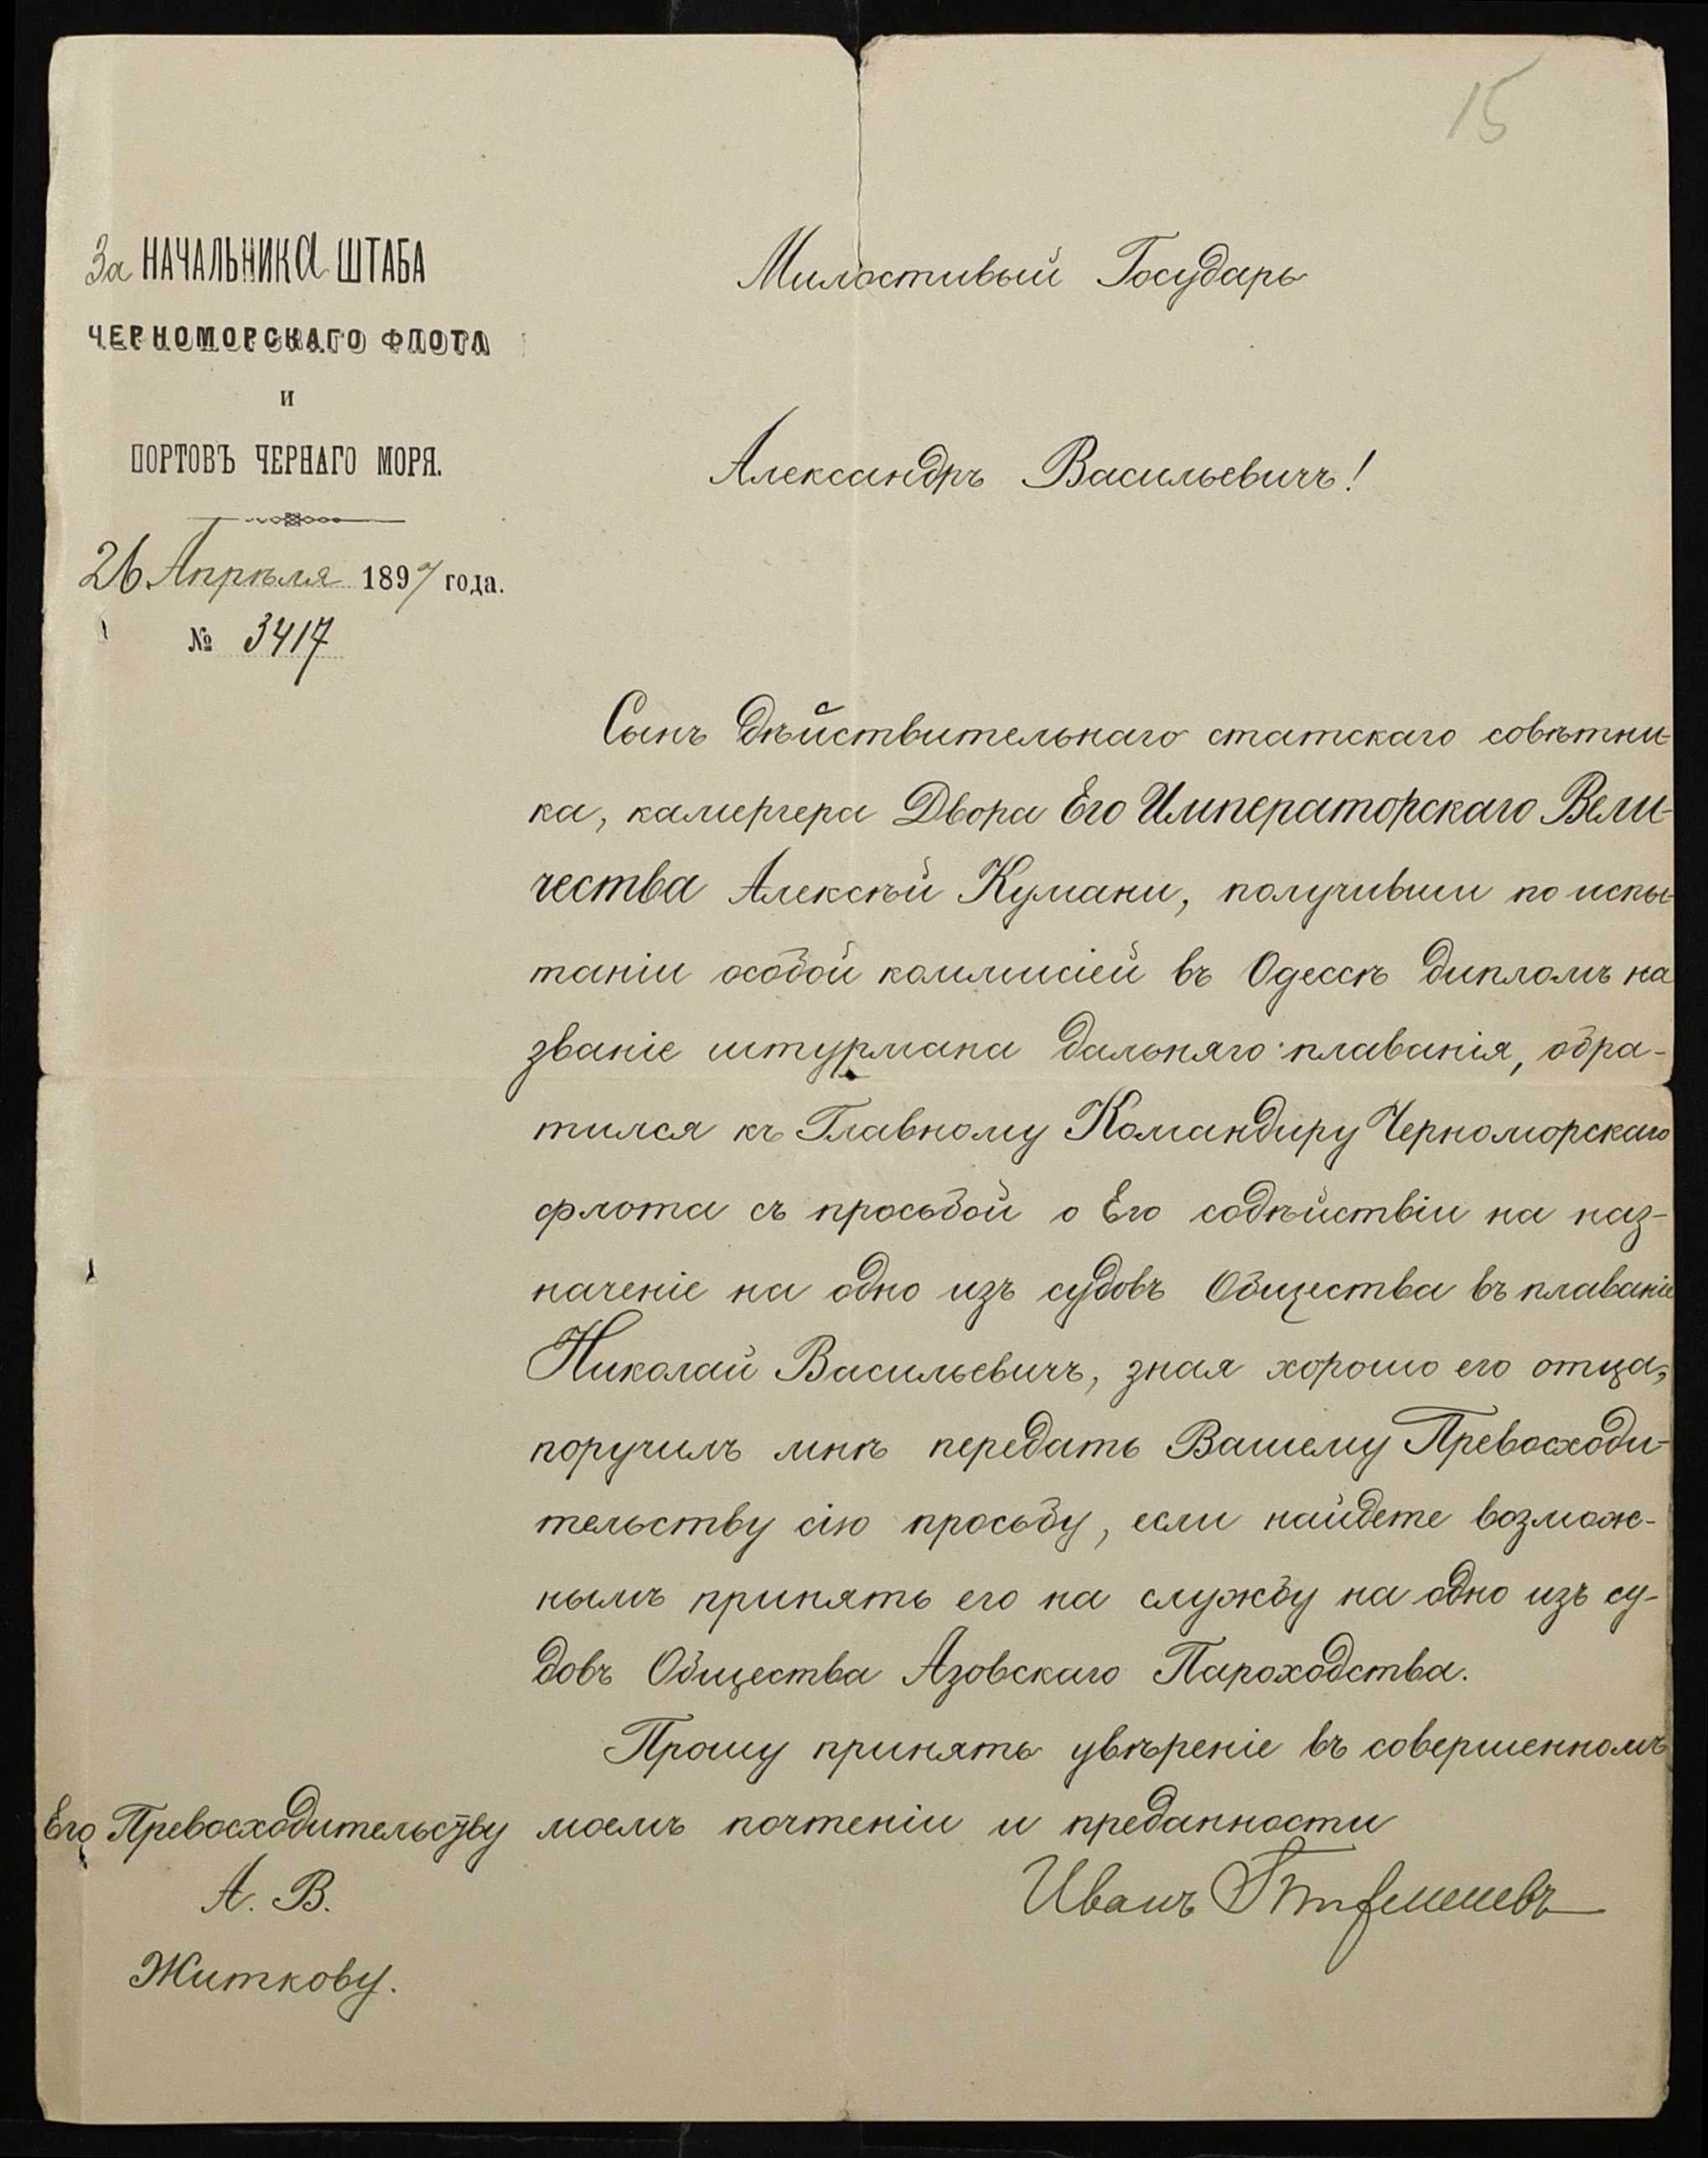 15
За НАЧАЛЬНИКа ШТАБА
ЧЕРНОМОРСКАГО ФЛОТА
и
ПОРТОВЪ ЧЕРНАГО МОРЯ.
26 Апрѣля 1897 года.
№ 3417
Милостивый Государь
Александръ Васильевичъ!
Сынъ дѣйствительнаго статскаго совѣтни-
ка, камергера Двора Его Императорскаго Вели-
чества Алексѣй Кумани, получивши по испы-
таніи особой коммисіей въ Одессѣ дипломъ на
званіе штурмана дальняго плаванія, обра-
тился къ Главному Командиру Черноморскаго
флота съ просьбой о Его содѣйствіи на наз-
наченіе на одно изъ судовъ Общества въ плаваніе
Николай Васильевичъ, зная хорошо его отца,
поручилъ мнѣ передать Вашему Превосходи-
тельству сію просьбу, если найдете возмож-
нымъ принять его на службу на одно изъ су-
довъ Общества Азовскаго Пароходства.
Прошу принять увѣреніе въ совершенномъ
моемъ почтеніи и преданности
Иванъ
Его Превосходительству
А. В.
Житкову.